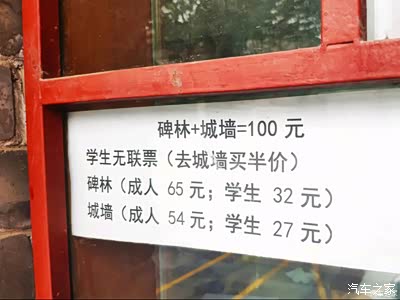 碑林+城墙=100 元
学生无联票（去城墙买半价）
碑林（成人 65 元；学生 32 元）
城墙（成人 54 元；学生 27 元）
汽车之家